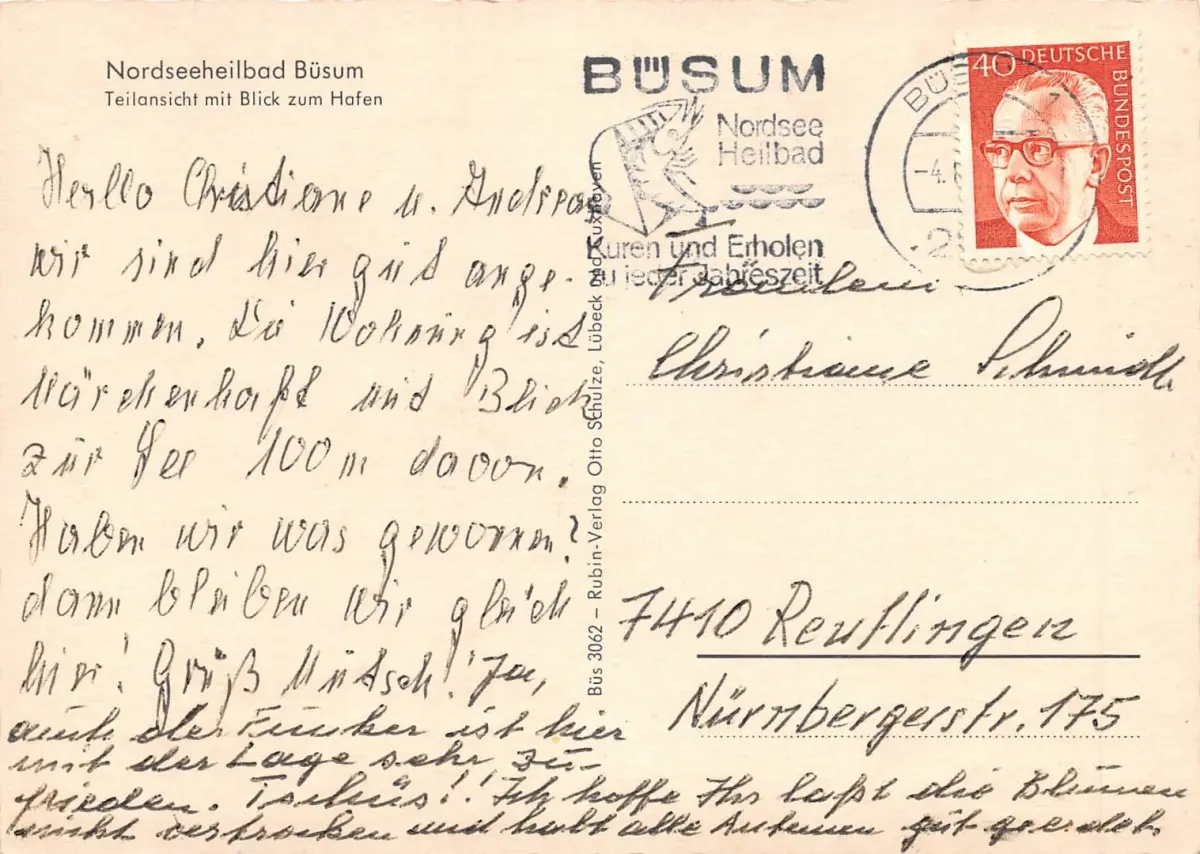 Nordseeheilbad Büsum
Teilansicht mit Blick zum Hafen
Hello Christiane u. Andreas
wir sind hier gut ange-
kommen. Die Wohnung ist
Märchenhaft und Blick
zur See 100 m davon.
Haben wir was gewonnen?
dann bleiben wir gleich
hier! Gruß Mutsch! Ja,
auch der Funker ist hier
mit der Lage sehr zu-
frieden. Tschüs!! Ich hoffe Ihr laßt die Blumen
nicht vertrocken und habt alle Antennen gut geerdet.
Büs 3062 – Rubin-Verlag Otto Schulze, Lübeck und Cuxhaven
BÜSUM
Nordsee
Heilbad
Kuren und Erholen
zu jeder Jahreszeit
BÜS
-4.
40 DEUTSCHE BUNDESPOST
Fräulein
Christiane Schmidt
7410 Reutlingen
Nürnbergerstr. 175